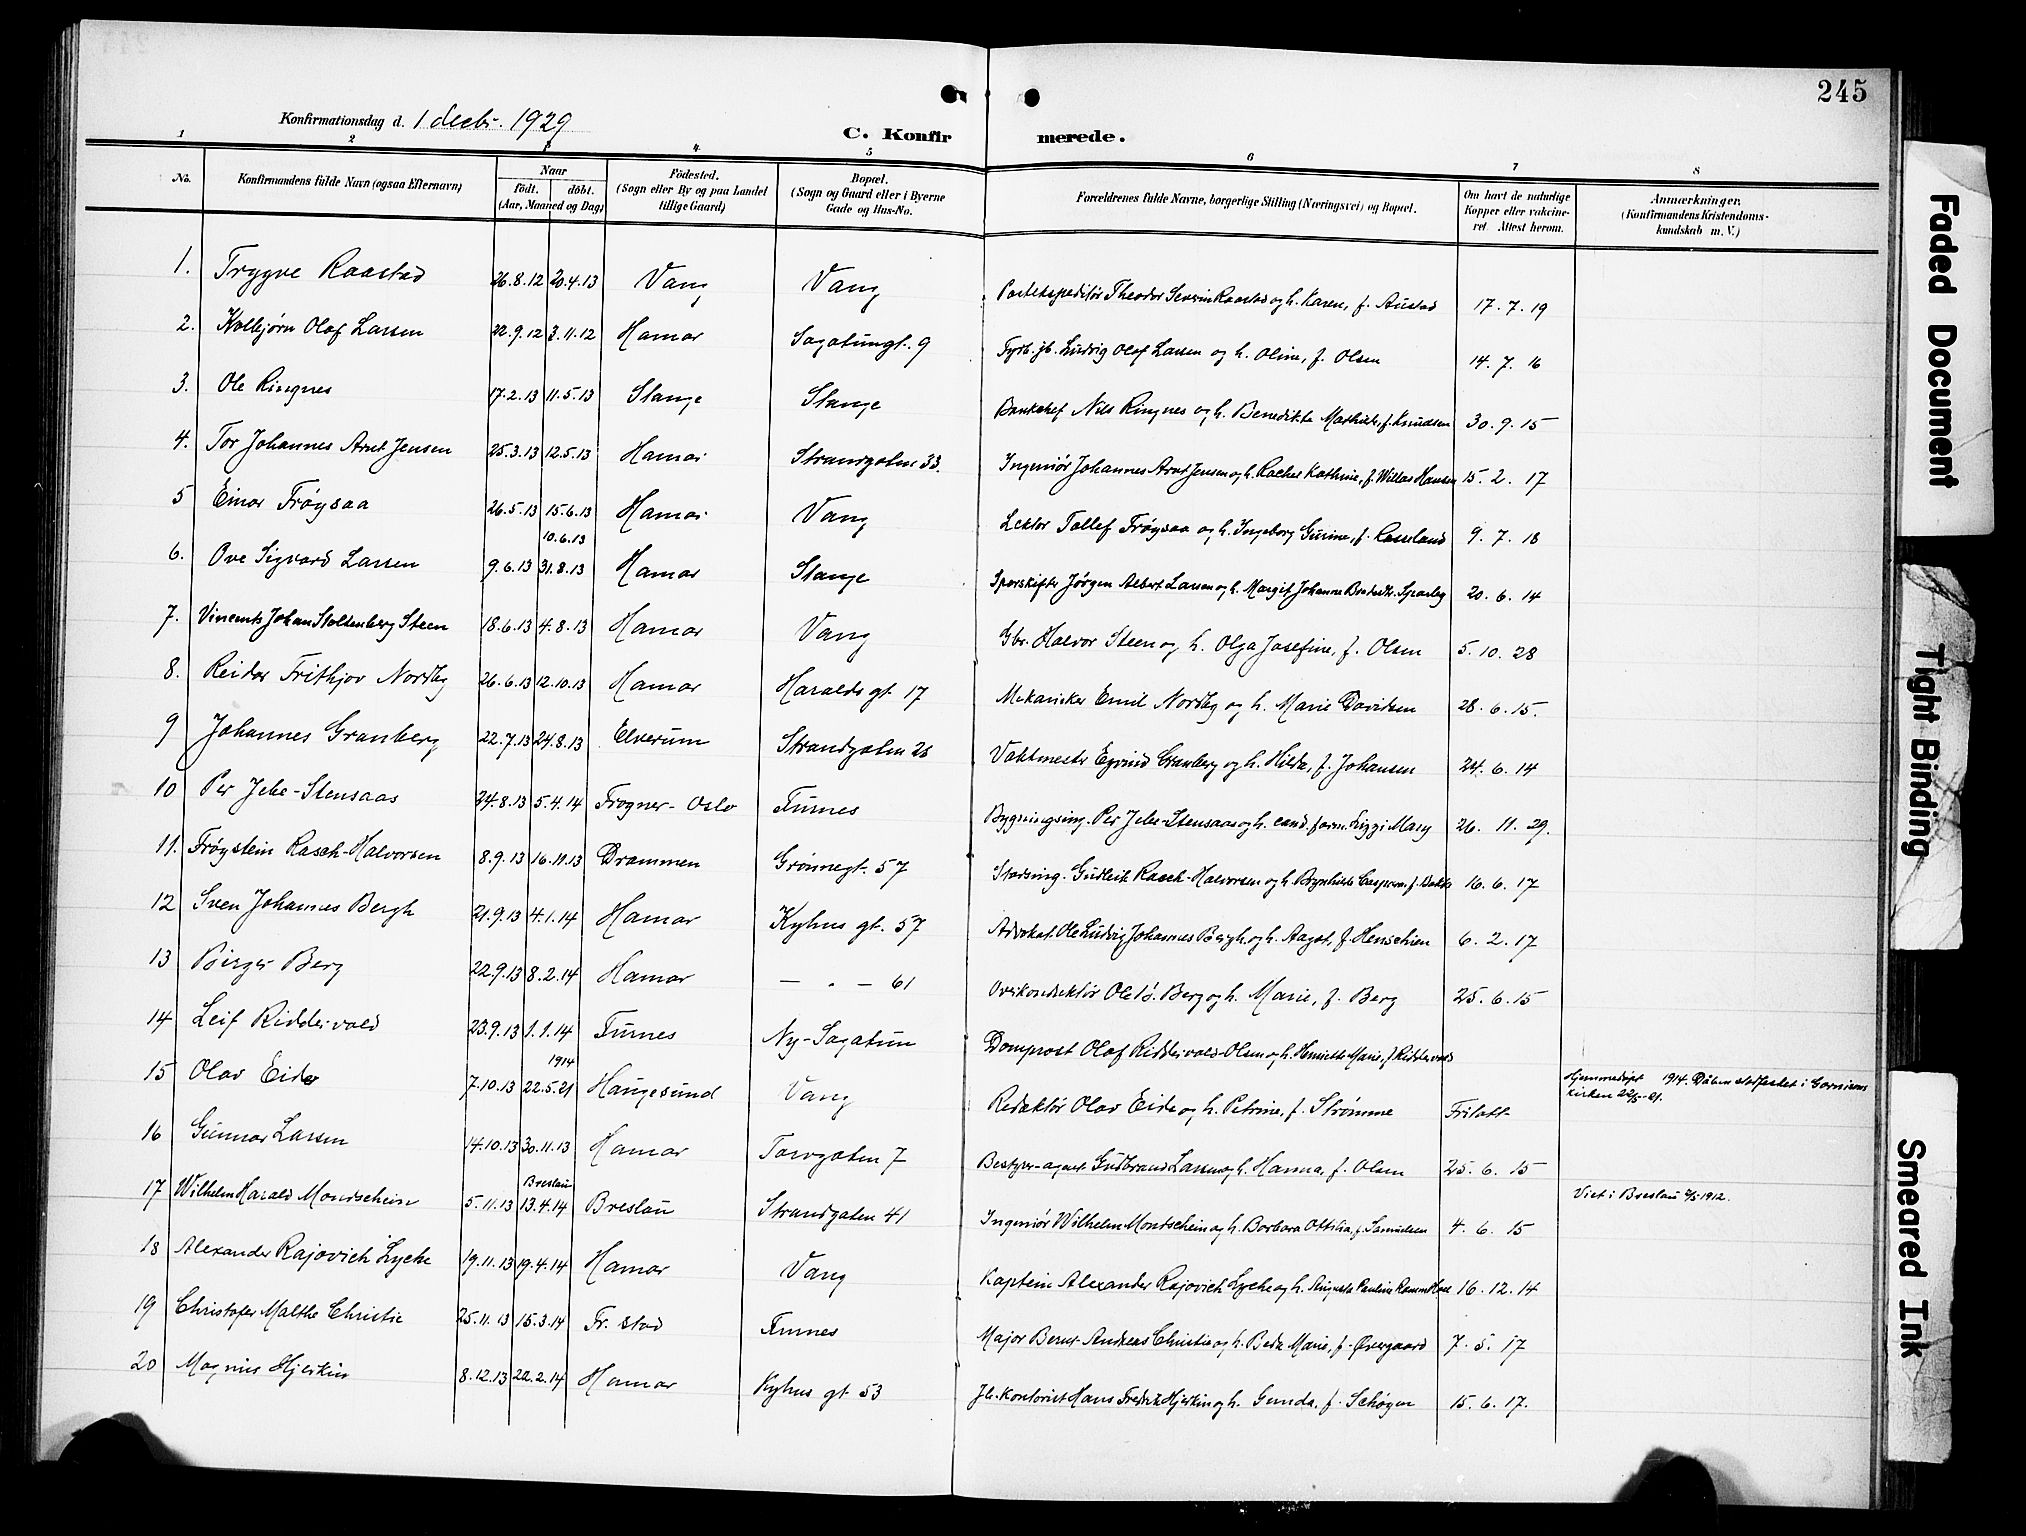 245
Konfirmationsdag d. 1 decbr. 1929
C. Konfirmerede.
1 2 3 4 5 6 7 8
No. Konfirmandens fulde Navn (ogsaa Efternavn) Naar födt. döbt. (Aar, Maaned og Dag) Födested. (Sogn eller By og paa Landet tillige Gaard) Bopæl. (Sogn og Gaard eller i Byerne Gade og Hus-No. Forældrenes fulde Navne, borgerlige Stilling (Næringsvei) og Bopæl. Om havt de naturlige Kopper eller vakcineret. Attest herom. Anmærkninger. (Konfirmandens Kristendomskundskab m. V.)
1. Trygve Raastad 26.8.12 20.4.13 Vang Vang Postekspeditör Theodor Severin Raastad og h. Karen, f. Austad 17.7.19
2. Kolbjørn Olaf Larsen 22.9.12 3.11.12 Hamar Sagatungt. 9 Fyrb. jb. Ludvig Olaf Larsen og h. Oline, f. Olsen 14.7.16
3. Ole Ringnes 17.2.13 11.5.13 Stange Stange Banksjef Nils Ringnes og h. Benedikte Mathilde, f. Knudsen 30.9.15
4. Tor Johannes Arnt Jensen 25.3.13 12.5.13 Hamar Strandgaten 33. Ingeniör Johannes Arnt Jensen og h. Rachel Kathrine, f. Willas Hansen 15.2.17
5 Einar Frøysaa 26.5.13 15.6.13 Hamar Vang Lektor Tallef Frøysaa og h. Ingeborg Gurine, f. Rosseland 9.7.18
10.6.13
6. Ove Sigvard Larsen 9.6.13 31.8.13 Hamar Stange Sporskifter Jørgen Albert Larsen og h. Margit Johanne 20.6.14
7. Vincents Johan Stoltenberg Steen 18.6.13 4.8.13 Hamar Vang Gbr. Halvor Steen og h. Olga Josefine, f. Olsen 5.10.28
8. Reidar Frithjov Nordby 26.6.13 12.10.13 Hamar Haralds gt 17 Mekaniker Emil Nordby og h. Marie Davidsen 28.6.15.
9 Johannes Granberg 22.7.13 24.8.13 Elverum Strandgaten 26 Vaktmester Eyvind Granberg og h. Hilda, f. Johansen 24.6.14
10 Per Jebe-Stensaas 24.8.13 5.4.14 Frogner - Oslo Furnes Bygningsing. Per Jebe-Stensaas og h. cand. farm. Mary 26.11.29.
11. Frøystein Rasch-Halvorsen 8.9.13 16.11.13 Drammen Grønnegt. 57 Stadsing. Gudleik Rasch-Halvorsen og h. Brynhild Caspara, f. Bakke 16.6.17
12 Sven Johannes Bergh 21.9.13 4.1.14 Hamar Kyhns gt. 57 Advokat Ole Ludvig Johannes Bergh og h. Aagot, f. Henschien 6.2.17
13 Birger Berg 22.9.13 8.2.14 Hamar — " — 61 Overkonduktör Ole Berg og h. Marie, f. Berg 25.6.15
14 Leif Riddervold 23.9.13 1.1.14 Furnes Ny-Sagatun Domprost Olaf Riddervold-Olsen og h. Henriette Marie, f. Riddervold
1914
15 Olav Eide 7.10.13 22.5.21 Haugesund Vang Redaktör Olav Eide og h. Petrine, f. Strømme Fritatt Hjemmedøpt 1914. Dåben stadfestet i Garnisons kirken 22/5-21.
16 Gunnar Larsen 14.10.13 30.11.13 Hamar Torvgaten 7 Bestyrer-agent Gudbrand Larsen og h. Hanna, f. Olsen 25.6.15
Breslau
17 Wilhelm Harald Mondschein 5.11.13 13.4.14 Breslau Strandgaten 41 Ingeniör Wilhelm Mondschein og h. Barbara Ottilia, f. Samuelsen 4.6.15 Viet i Breslau 1912.
18 Alexander Rajovich Lyche 19.11.13 19.4.14 Hamar Vang Kaptein Alexander Rajovich Lyche og h. Augusta Pauline 16.12.14
19 Christofer Malthe Christie 25.11.13 15.3.14 Fr. stad Furnes Major Bernt Andreas Christie og h. Marie, f. Øvergaard 7.5.17
20 Magnus Hjerkin 8.12.13 22.2.14 Hamar Kyhns gt 53 Jb. kontorist Hans Fredrik Hjerkin og h. Gunda, f. Schøyen 15.6.17.
Faded Document
Tight Binding
Smeared Ink